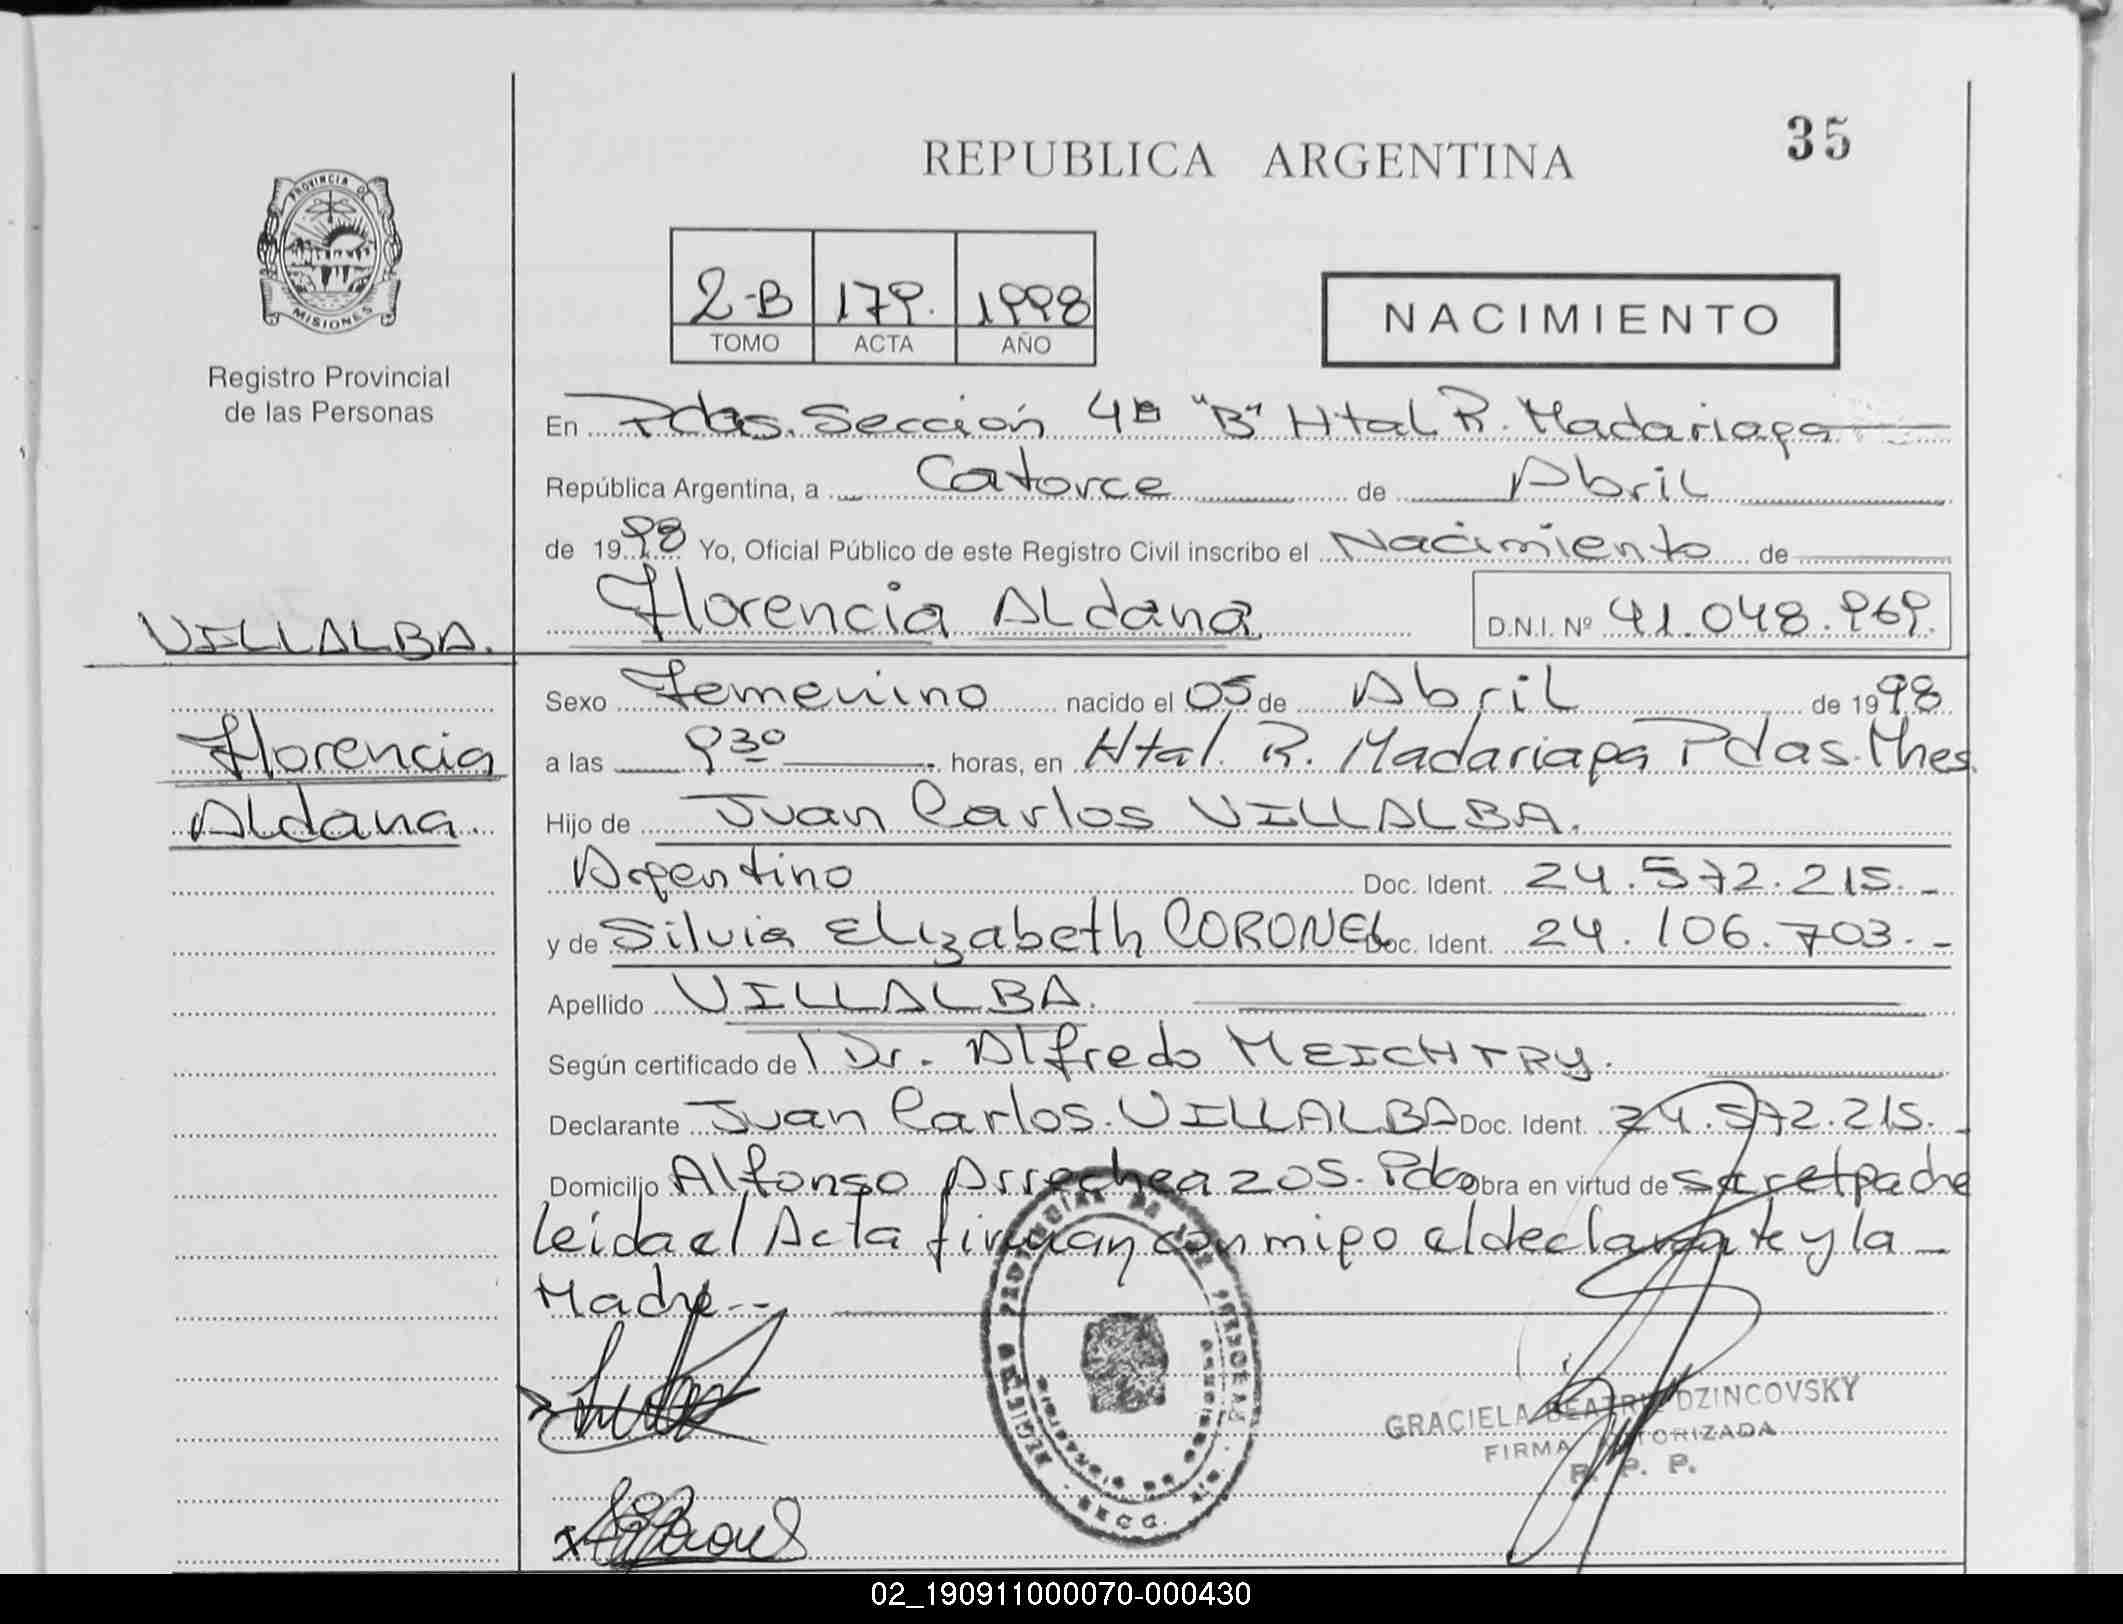 35
REPUBLICA ARGENTINA
PROVINCIA DE
MISIONES
Registro Provincial
de las Personas
2-B 179. 1998
TOMO ACTA AÑO
NACIMIENTO
En Pdas. Sección 4a "B" Htal R. Madariaga
República Argentina, a Catorce de Abril
de 1998 Yo, Oficial Público de este Registro Civil inscribo el Nacimiento de
Florencia Aldana D.N.I. Nº 41.048.969.
VILLALBA.
Florencia
Aldana.
Sexo Femenino nacido el 05 de Abril de 1998
a las 930 horas, en Htal. R. Madariaga Pdas. Mnes
Hijo de Juan Carlos VILLALBA.
Argentino Doc. Ident. 24.572.215.-
y de Silvia Elizabeth CORONEL Doc. Ident. 24.106.703.-
Apellido VILLALBA.
Según certificado de Dr. Alfredo MEICHTRY.
Declarante Juan Carlos. VILLALBA Doc. Ident. 24.572.215.-
Domicilio Alfonso Arrechea 205. Pdas obra en virtud de ser el padre
leida el Acta firman conmigo el declarante y la
Madre--
REGISTRO PROVINCIAL DE LAS PERSONAS
SECC.
GRACIELA BEATRIZ DZINCOVSKY
FIRMA AUTORIZADA
R. P. P.
02_190911000070-000430